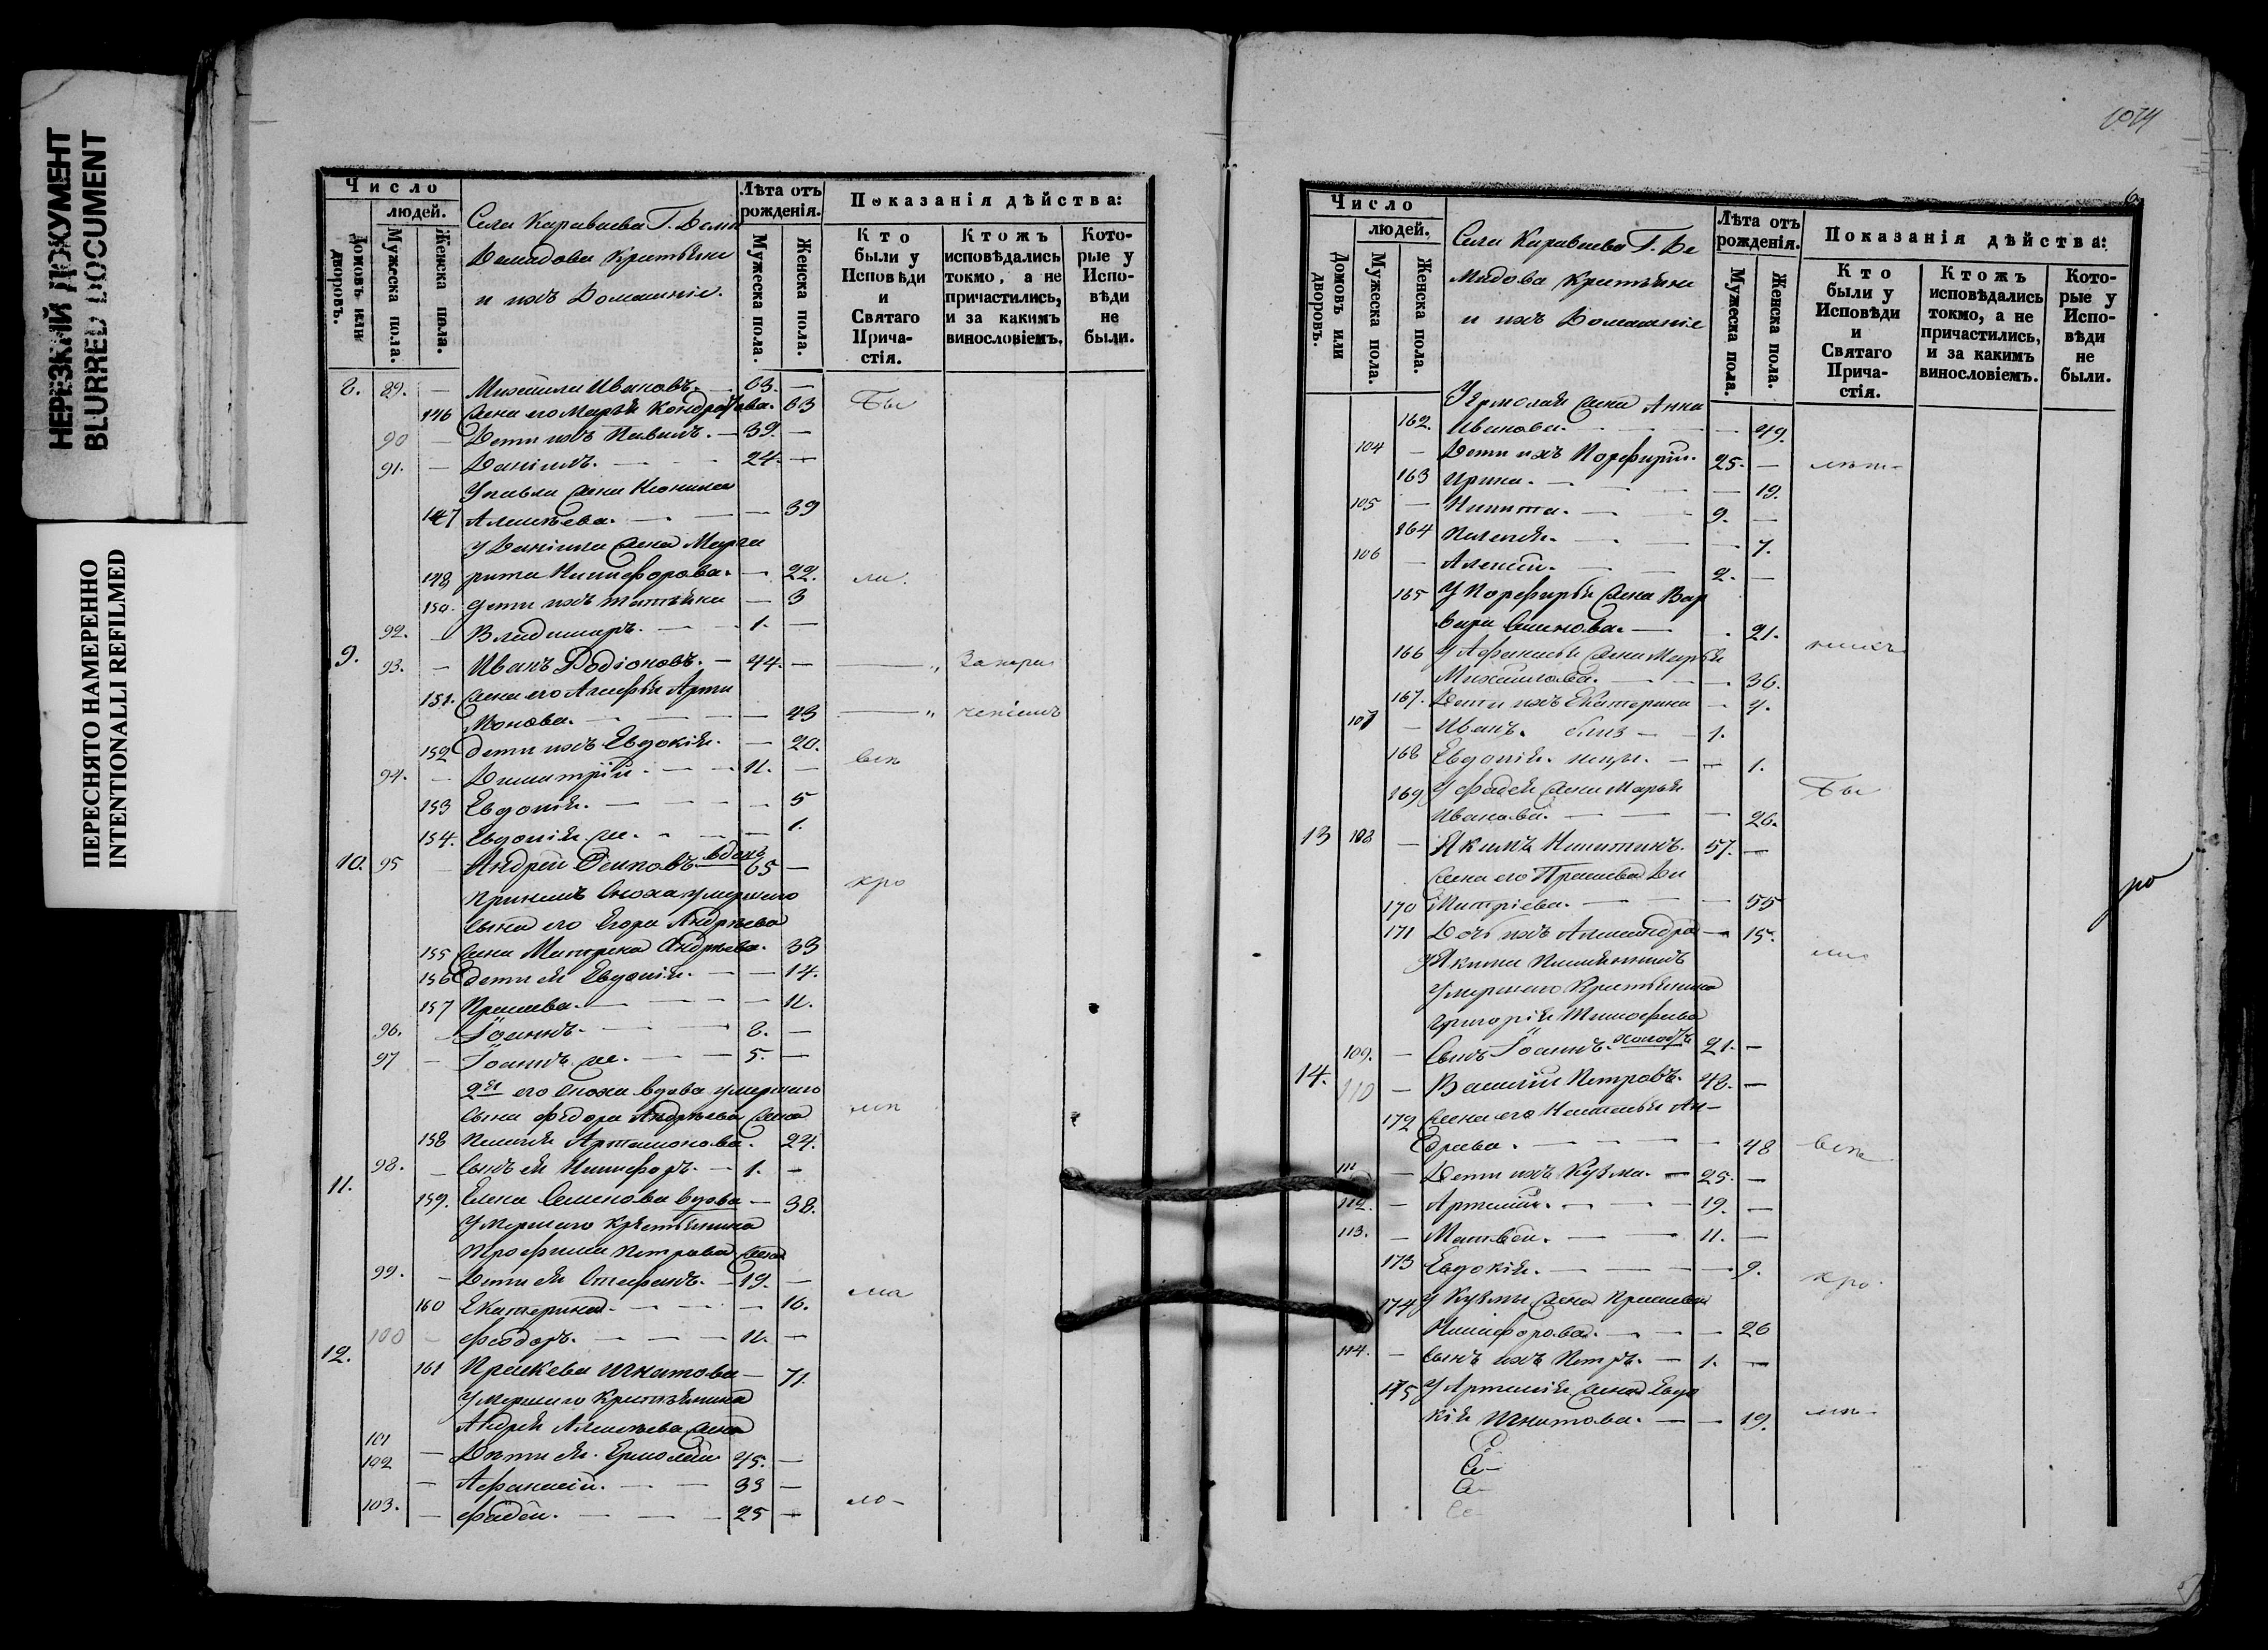 НЕРЕЗКИЙ ДОКУМЕНТ
BLURRED DOCUMENT
ПЕРЕСНЯТО НАМЕРЕННО
INTENTIONALLI REFILMED
Число
людей.
Домовъ или дворовъ.
Мужеска пола.
Женска пола.
Села Караваева Г. Деми
Демидова Крестьяне
и ихъ Домашніе.
Лѣта отъ рожденія.
Мужеска пола.
Женска пола.
Показанія дѣйства:
Кто были у Исповѣди и Святаго Прича-стія.
Ктожъ исповѣдались токмо, а не причастились, и за какимъ винословіемъ.
Кото-рые у Испо-вѣди не были.
8. 89. — Михайла Ивановъ. — 63. —
146 Жена его Марья Кондратьева. 63 Бы
90 — Дети ихъ Павелъ. — 39. —
91. — Данiилъ. — 24. —
У Павла жена
147 Алексѣева. — — 39
У Данiила жена Марга
148 рита Никифорова. — 22. ли.
150. Дети ихъ Татьяна — 3
92. — Владимиръ. — 1. —
9. 93. — Иванъ Родіоновъ. — 44. — — „ За нера
151. Жена его Агафья Арта
монова. — — 43 — „ ченіемъ
152 Дети ихъ Евдокія. — 20.
94. — Димитрій. — 11. — всѣ
153 Евдокія. — — 5
154. Евдокія м. — — 1.
10. 95 — Андрей Осиповъ вдовъ 65 —
При немъ Сноха умершаго кро
Сына его Егора Андрѣева
155 Жена Матрена Андрѣева. 33
156 Дети ея Евдокія. — — 14.
157 Прасковья. — — 11.
96. — Іоаннъ. — 8. —
97 — Іоаннъ м. — 5. —
2я его Сноха вдова умершаго
Сына Федора Андрѣева Жена мѣ
158 Пелагія Артамонова. 24.
98. — Сынъ ея Никифоръ. — 1. —
11. 159. Елена Семенова вдова — 38.
Умершаго Крестьянина
Трофима Петрова Жена
99. — Дети ея Стефанъ. — 19. —
160 Екатерина. — — 16. ма
100 — Феодоръ. — — 11. —
12. 161 Праскева Игнатова — 71.
Умершаго Крестьянина
Андрея Алексѣева Жена
101
102 — Дѣти ея Ермолай 45. —
— Афанасій. — — 33 —
103. — Фадей. — — 25 — ло-
1074
6
Число
людей.
Домовъ или дворовъ.
Мужеска пола.
Женска пола.
Села Караваева Г. Де
мидова Крестьяне
и ихъ Домашніе
Лѣта отъ рожденія.
Мужеска пола.
Женска пола.
Показанія дѣйства:
Кто были у Исповѣди и Святаго Прича-стія.
Ктожъ исповѣдались токмо, а не причастились, и за какимъ винословіемъ.
Кото-рые у Испо-вѣди не были.
У Ермолая жена Анна
162. Иванова. — — 49.
104 — Дети ихъ Порфирій. 25. — лѣт-
163 Ирина. — — 19.
105 — Никита. — 9. —
164 Пелагія. — — 7.
106 — Алексій. — 2. —
165 У Порфирья Жена Вар
вара Семенова. — 21.
166 У Афанасья Жена Марья нихъ
Михайлова. — — 36.
167. Дети ихъ Екатерина — 4.
107 — Иванъ. близ — 1.
168 Евдокія. нецы. — — 1.
169 У Фадея Жена Марья Бы
Иванова. — — 26.
13 108 — Якимъ Никитинъ. 57. —
Жена его Праскева Ди
170 митріева. — — 55
171 Дочь ихъ Александра — 15.
У Якима Племянникъ ли
Умершаго Крестьянина
Григорія Тимофеева
109. — Сынъ Іоаннъ. холостъ 21. —
14. 110 — Василій Петровъ. 48. —
172 Жена его Наталья Ан-
дреева. — — 48 всѣ
111 — Дети ихъ Кузма. — 25. —
112. — Артемій. — — 19. —
113. — Матвей. — — 11. —
173 Евдокія. — — 9. кро-
174 У Кузмы Жена Праскева
Никифорова. — — 26
114. — Сынъ ихъ Петръ. — 1. —
175 У Артемія Жена Евдо
кія Игнатова. — — 19. мѣ-
ро